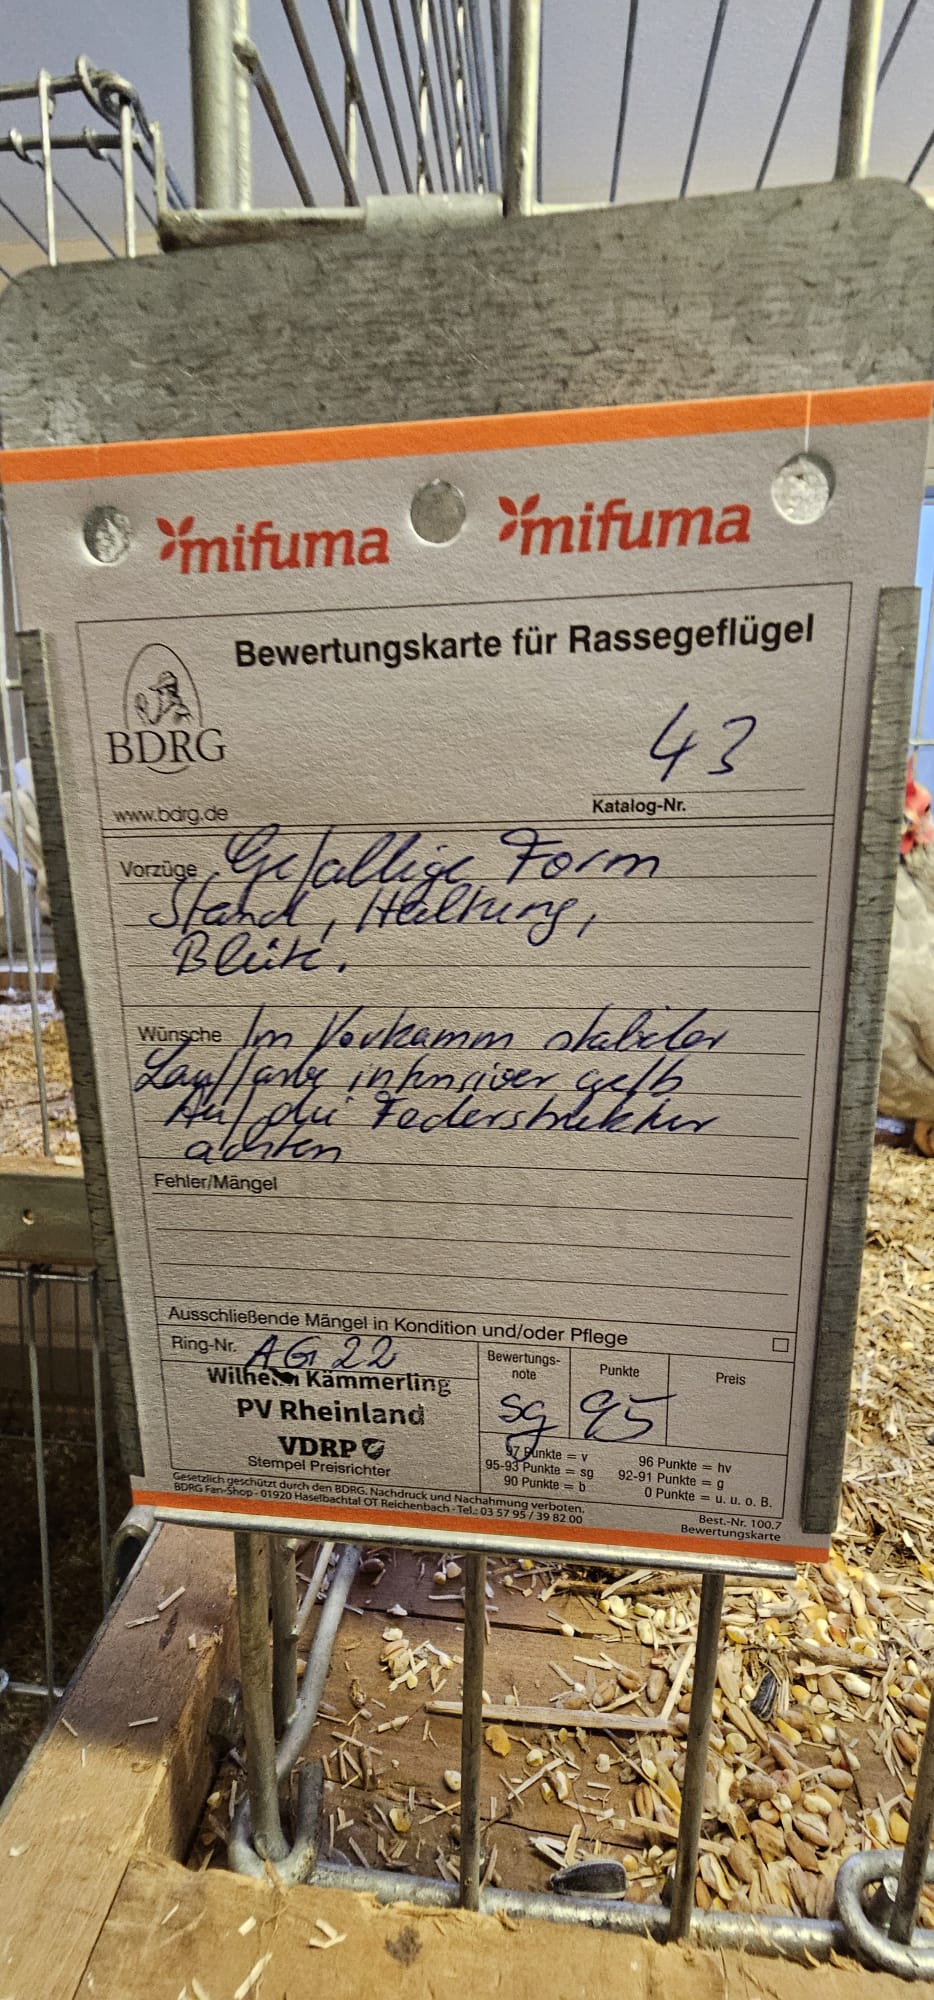 mifuma mifuma
Bewertungskarte für Rassegeflügel
BDRG
43
www.bdrg.de
Katalog-Nr.
Vorzüge Gefällige Form
Stand, Haltung,
Blüte.
Wünsche Im Vorkamm stabiler
Lauffarbe intensiver gelb
Auf die Federstruktur
achten
Fehler/Mängel
Ausschließende Mängel in Kondition und/oder Pflege
Ring-Nr. AG 22
Wilhelm Kämmerling
PV Rheinland
VDRP
Stempel Preisrichter
Bewertungs-
note
Punkte
Preis
sg 95
97 Punkte = v 96 Punkte = hv
95-93 Punkte = sg 92-91 Punkte = g
90 Punkte = b 0 Punkte = u. u. o. B.
Gesetzlich geschützt durch den BDRG. Nachdruck und Nachahmung verboten.
BDRG Fan-Shop - 01920 Haselbachtal OT Reichenbach - Tel.: 03 57 95 / 39 82 00
Best.-Nr. 100.7
Bewertungskarte